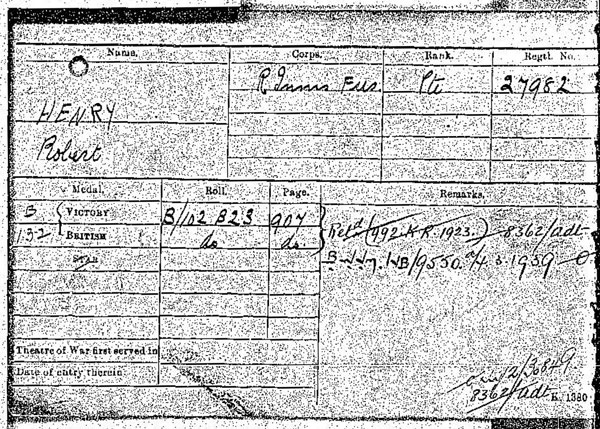 Name. Corps. Rank. Regtl. No.
R Innis Fus. Pte 27982
HENRY
Robert
Medal. Roll. Page. Remarks.
B VICTORY B/102 B23 907
132 BRITISH do do
Retd (992 K.R. 1923.) 8362/adt
STAR
NB/9550 3.1939
Theatre of War first served in
Date of entry therein
12/3684
8362/adt K. 1380